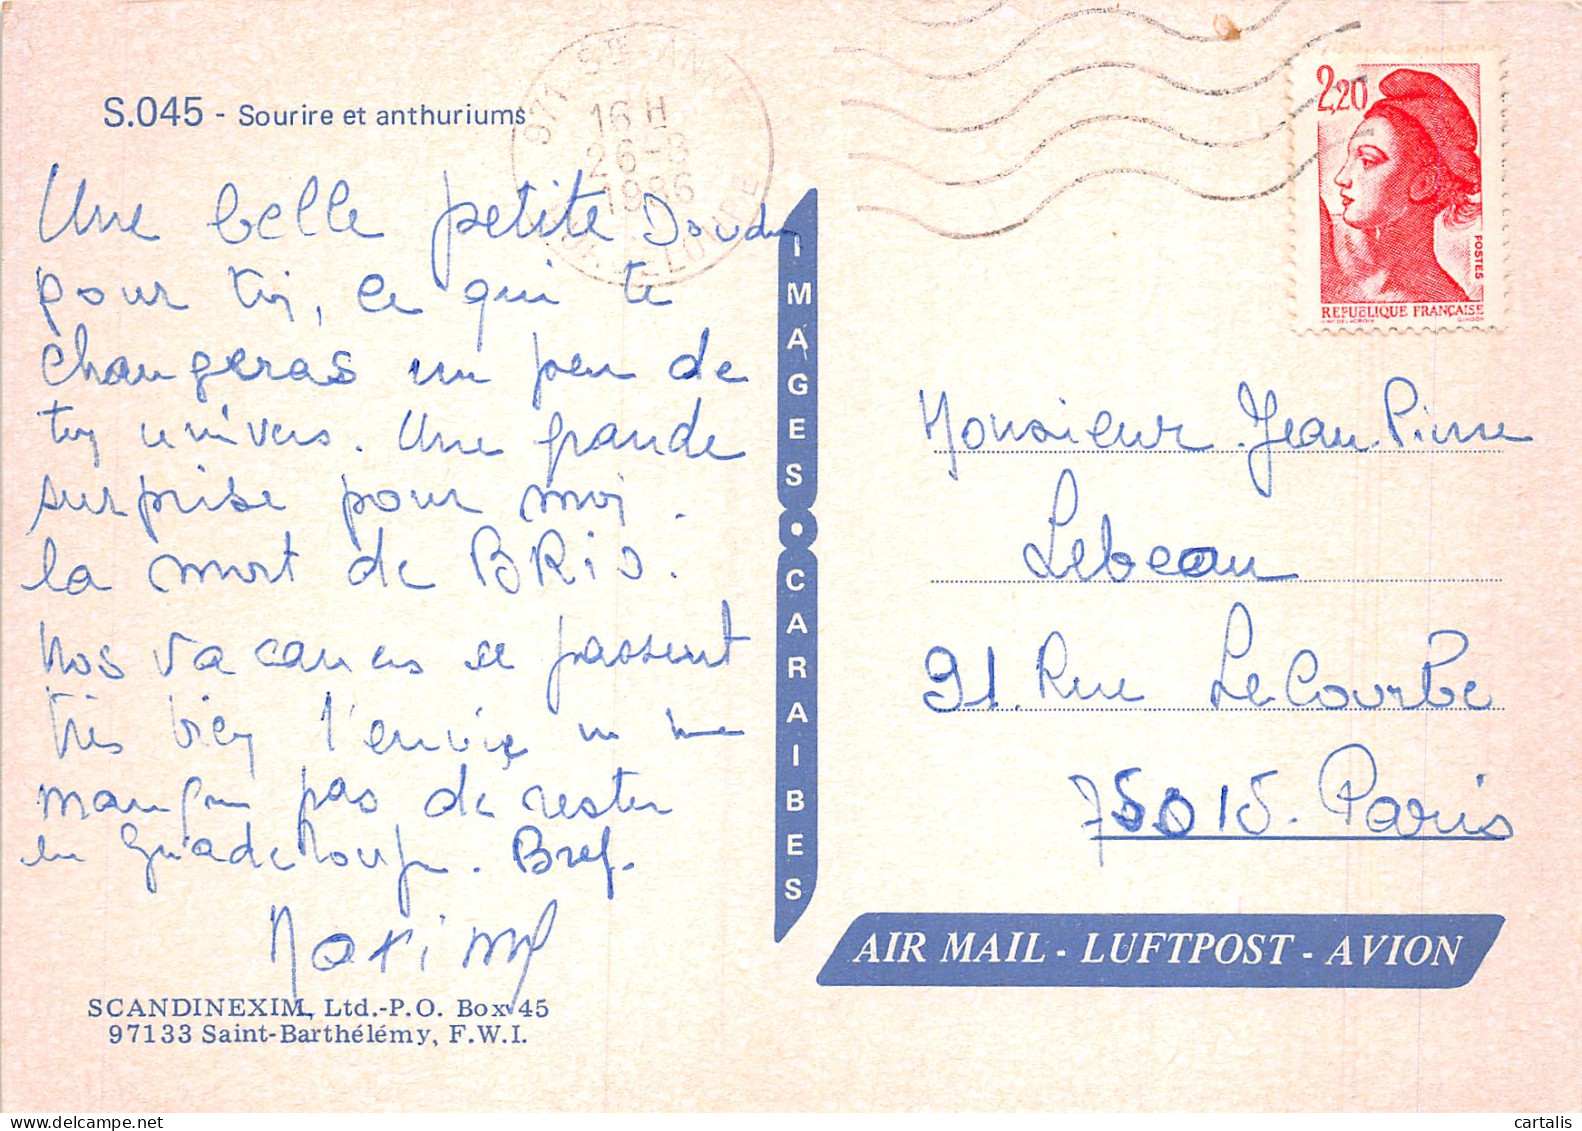 S.045 - Sourire et anthuriums
971 STE ANNE
16 H
26-8
1986
GUADELOUPE
2,20
POSTES
REPUBLIQUE FRANÇAISE
Une belle petite Doudou
pour toi, ce qui te
changeras un peu de
ton univers. Une grande
surprise pour moi.
la mort de BRIO.
Nos vacances se passent
très bien l'envie ne me
manque pas de rester
en Guadeloupe. Bref.
Maxime
SCANDINEXIM, Ltd.-P.O. Box 45
97133 Saint-Barthélémy, F.W.I.
IMAGES • CARAIBES
Monsieur Jean-Pierre
Lebeau
91. Rue LeCourbe
75015. Paris
AIR MAIL - LUFTPOST - AVION
cartalis
www.delcampe.net